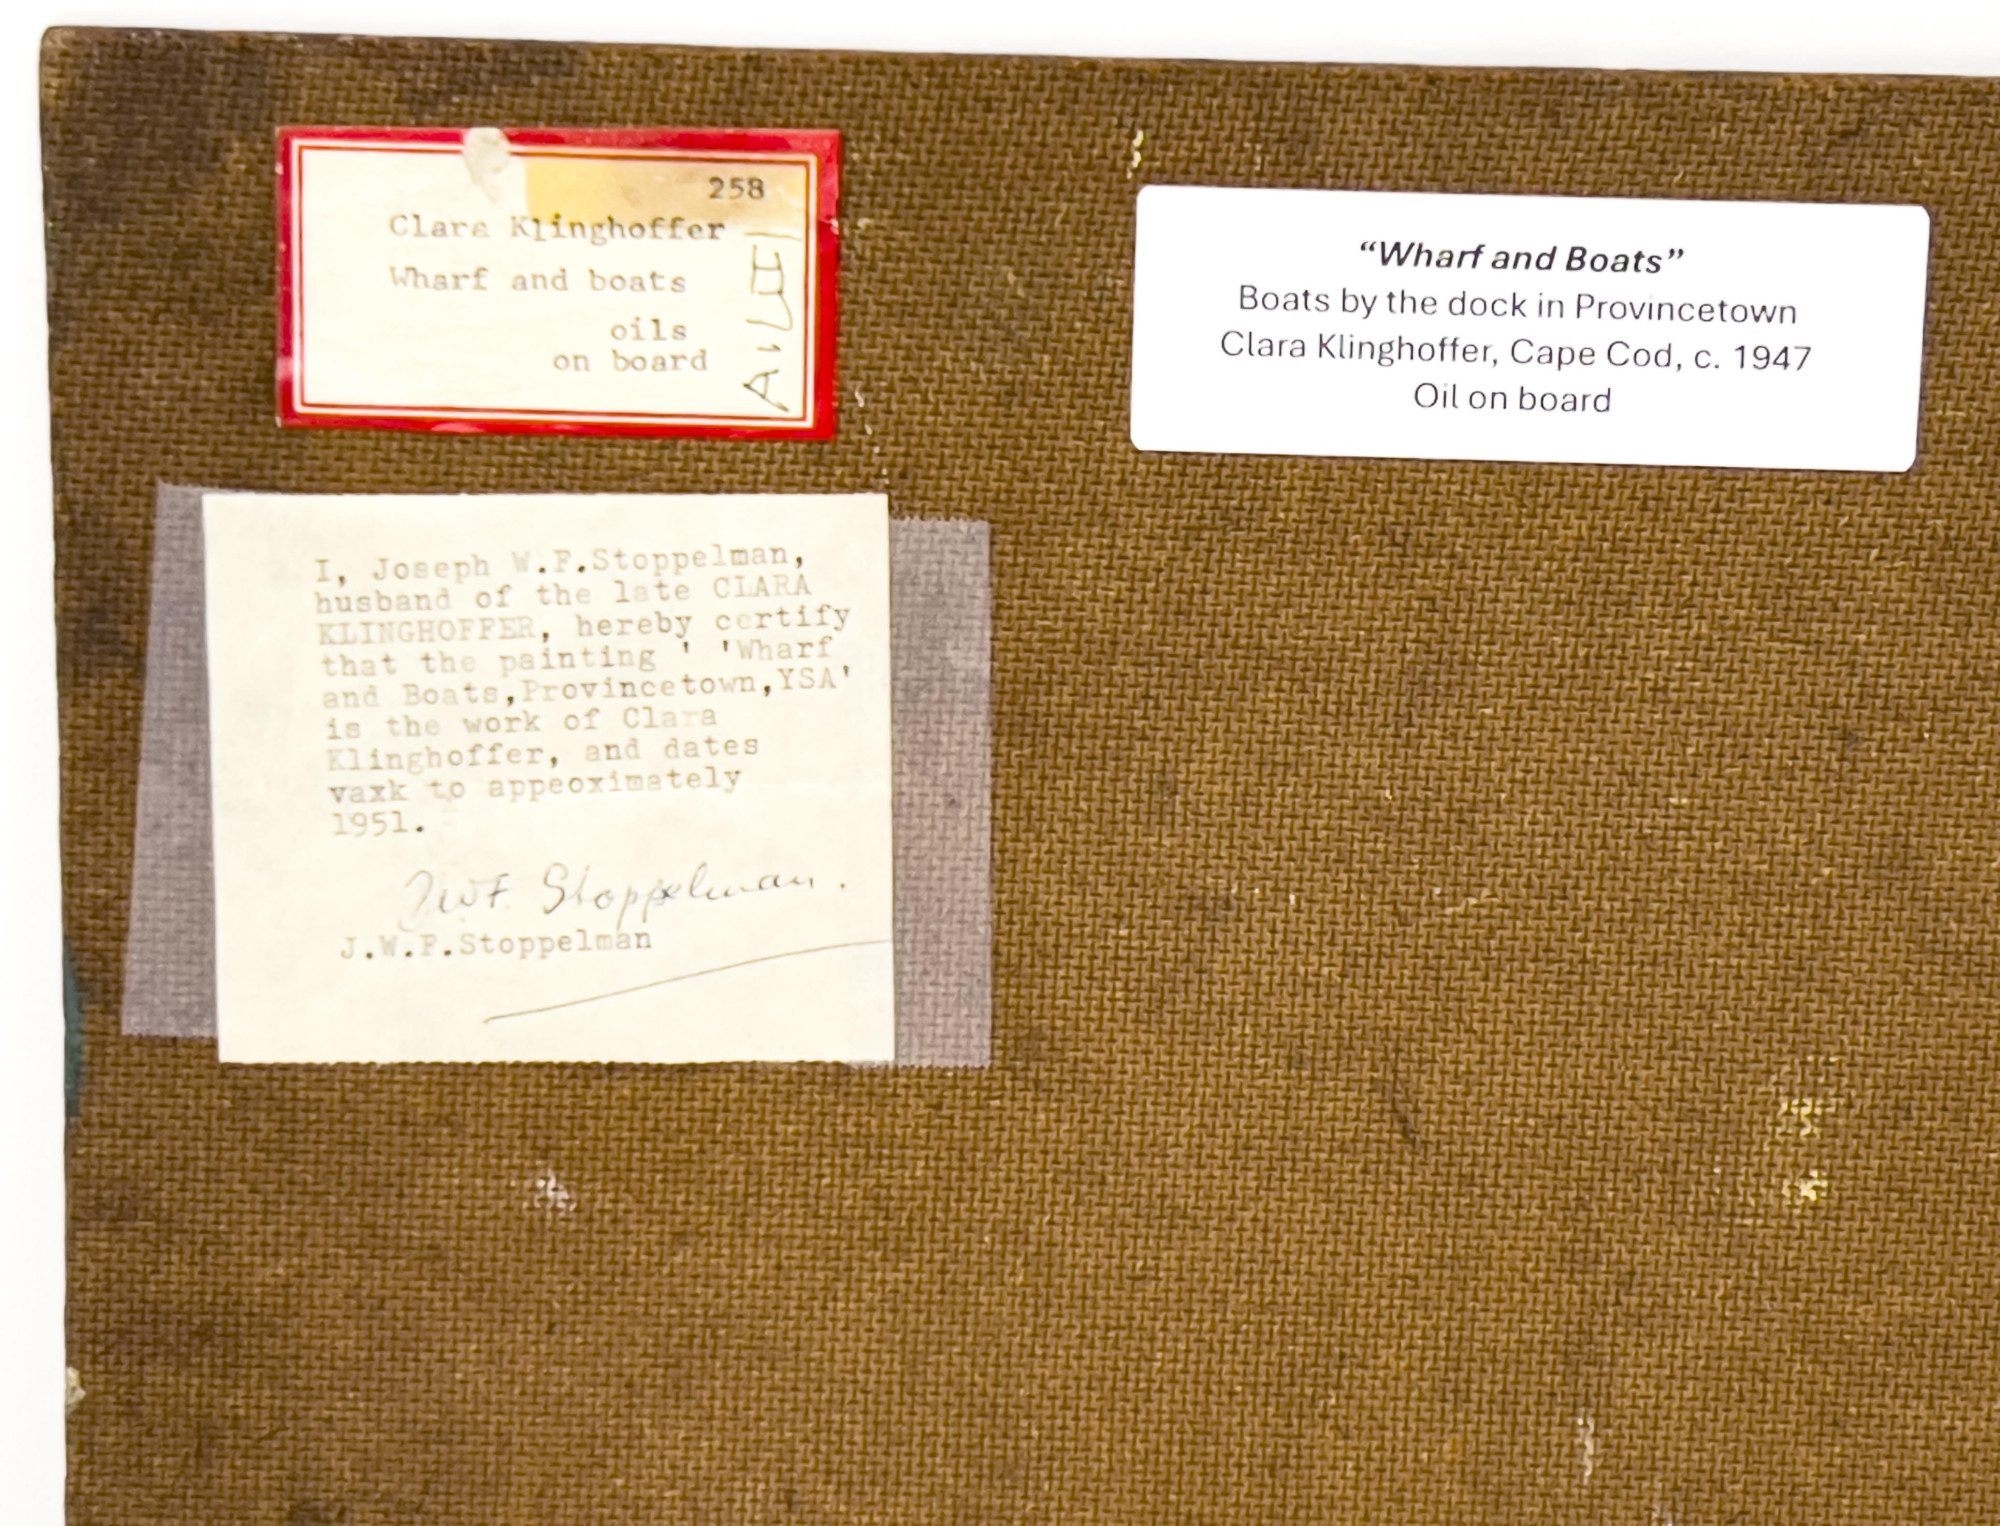 258
Clara Klinghoffer
Wharf and boats
oils
on board
“Wharf and Boats”
Boats by the dock in Provincetown
Clara Klinghoffer, Cape Cod, c. 1947
Oil on board
I, Joseph W.F.Stoppelman,
husband of the late CLARA
KLINGHOFFER, hereby certify
that the painting ' 'Wharf
and Boats,Provincetown,YSA'
is the work of Clara
Klinghoffer, and dates
vaxk to appeoximately
1951.
JWF Stoppelman.
J.W.F.Stoppelman